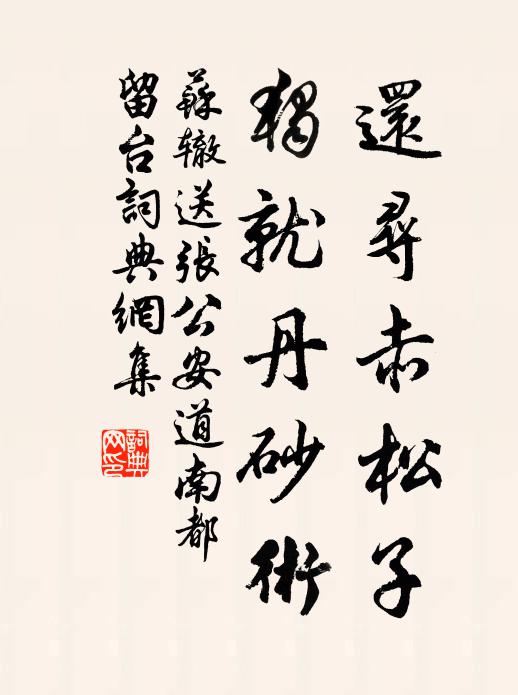 還尋赤松子
獨就丹砂術
蘇轍送張公安道南都
留台詞典網集
詞典
网印